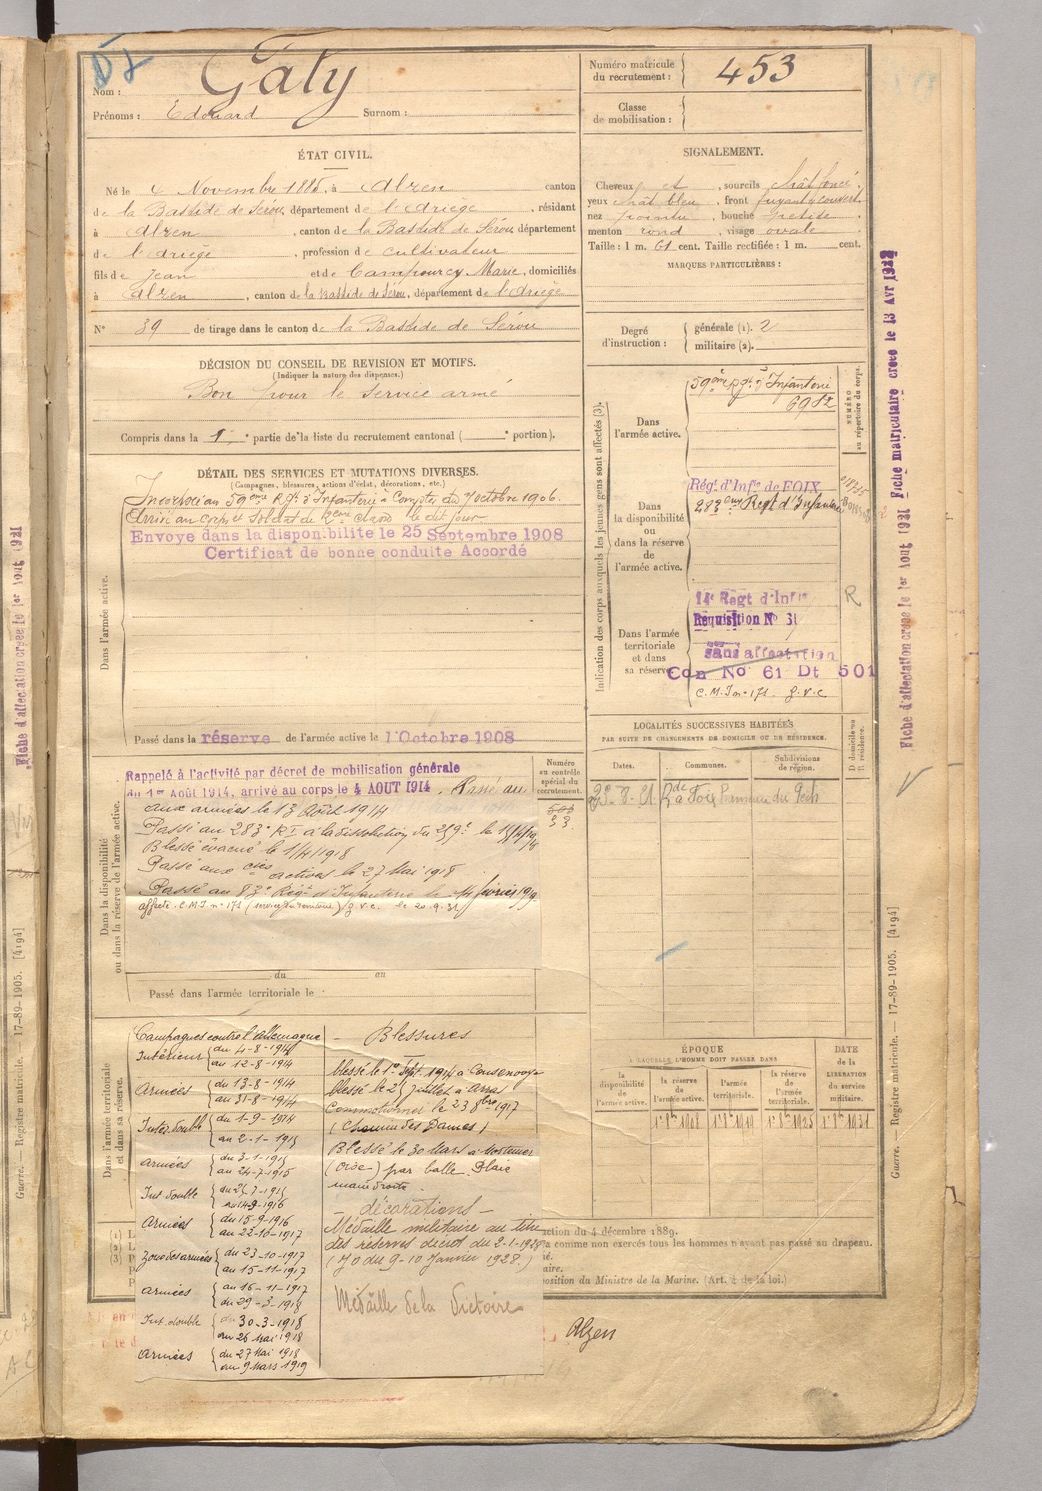 DJ
Nom : Galy
Prénoms : Edouard Surnom :
Numéro matricule du recrutement : 453
Classe de mobilisation :
ÉTAT CIVIL.
Né le 4 Novembre 1885, à Alzen canton
de la Bastide de Sérou, département de l'Ariège, résidant
à Alzen, canton de la Bastide de Sérou département
de l'Ariège, profession de cultivateur
fils de Jean et de Campourcy Marie, domiciliés
à Alzen, canton de la Bastide de Sérou, département de l'Ariège
N° 39 de tirage dans le canton de la Bastide de Sérou
SIGNALEMENT.
Cheveux et , sourcils chât foncé.
yeux chât bleu , front fuyant couvert
nez pointu , bouche petite
menton rond , visage ovale
Taille : 1 m. 61 cent. Taille rectifiée : 1 m. cent.
MARQUES PARTICULIÈRES :
Degré d'instruction : générale (1). 2
militaire (2).
DÉCISION DU CONSEIL DE REVISION ET MOTIFS.
(Indiquer la nature des dispenses.)
Bon pour le service armé
Compris dans la 1re partie de la liste du recrutement cantonal ( portion).
DÉTAIL DES SERVICES ET MUTATIONS DIVERSES.
(Campagnes, blessures, actions d'éclat, décorations, etc.)
Dans l'armée active.
Incorporé au 59ème Rgt d'Infanterie à Compter du 7 octobre 1906.
Arrivé au corps et soldat de 2ème classe le dit jour
Envoye dans la disponibilite le 25 Septembre 1908
Certificat de bonne conduite Accordé
Passé dans la réserve de l'armée active le 1 Octobre 1908
Indication des corps auxquels les jeunes gens sont affectés (3).
NUMÉRO au répertoire du corps.
Dans l'armée active.
59ème Rgt d'Infanterie
6982
Dans la disponibilité ou dans la réserve de l'armée active.
Régt d'Infie de FOIX
283ème Regt d'Infanterie
Dans l'armée territoriale et dans sa réserve.
14e Regt d'Infie
R
Requisition N° 31
sans affectation
Can No 61 Dt 501
C.M.I n° 171 g.v.c
Dans la disponibilité ou dans la réserve de l'armée active.
Numéro au contrôle spécial du recrutement.
Rappelé à l'activité par décret de mobilisation générale
du 1er Août 1914, arrivé au corps le 4 AOUT 1914. Passé au
aux armées le 13 Août 1914
Passé au 283e RI à la dissolution du 259e le 15/4/1918
Blessé évacué le 1/4/1918
Passé aux cies actives le 27 Mai 1918
Passé au 83e Régt d'Infanterie le 14 février 1919
affecté C.M.I n° 171 g.v.c. le 20-9-32
33
du au
Passé dans l'armée territoriale le
LOCALITÉS SUCCESSIVES HABITÉES
PAR SUITE DE CHANGEMENTS DE DOMICILE OU DE RÉSIDENCE.
Dates. Communes. Subdivisions de région. D domicile ou R résidence.
Dans l'armée territoriale et dans sa réserve.
Campagnes contre l'allemagne
Intérieur du 4-8-1914
au 12-8-1914
Armées du 13-8-1914
au 31-8-1914
Inter double du 1-9-1914
au 2-1-1915
armées du 3-1-1915
au 24-7-1915
Int double du 25-7-1915
au 14-9-1916
Armées du 15-9-1916
au 22-10-1917
Zone des armées du 23-10-1917
au 15-11-1917
armées au 16-11-1917
du 29-3-1918
Int. double du 30-3-1918
au 26 Mai 1918
Armées du 27 Mai 1918
au 9 Mars 1919
Blessures
blessé le 1er Sept. 1914 à Consenvoye
blessé le 25 juillet à Arras
Commotionné le 23 8bre 1917
(Chemin des Dames)
Blessé le 30 Mars à
(Oise) par balle Plaie
main droite
décorations
Médaille militaire au titre
des réserves décret du 2-1-1928
(JO du 9-10 Janvier 1928.)
Médaille de la Victoire
ÉPOQUE
À LAQUELLE L'HOMME DOIT PASSER DANS
DATE de la LIBÉRATION du service militaire.
la disponibilité de l'armée active. la réserve de l'armée active. l'armée territoriale. la réserve de l'armée territoriale.
ction du 4 décembre 1889.
comme non exercés tous les hommes n'ayant pas passé au drapeau.
position du Ministre de la Marine. (Art. 4 de la loi.)
Alzen
Guerre. — Registre matricule. — 17-89-1905. [4194]
Fiche d'affectation creee le 1er Aout 1921
Fiche matriculaire creee le 13 Avr 1922
Guerre. — Registre matricule. — 17-89-1905. [4194]
Fiche d'affectation creee le 1er Aout 1921